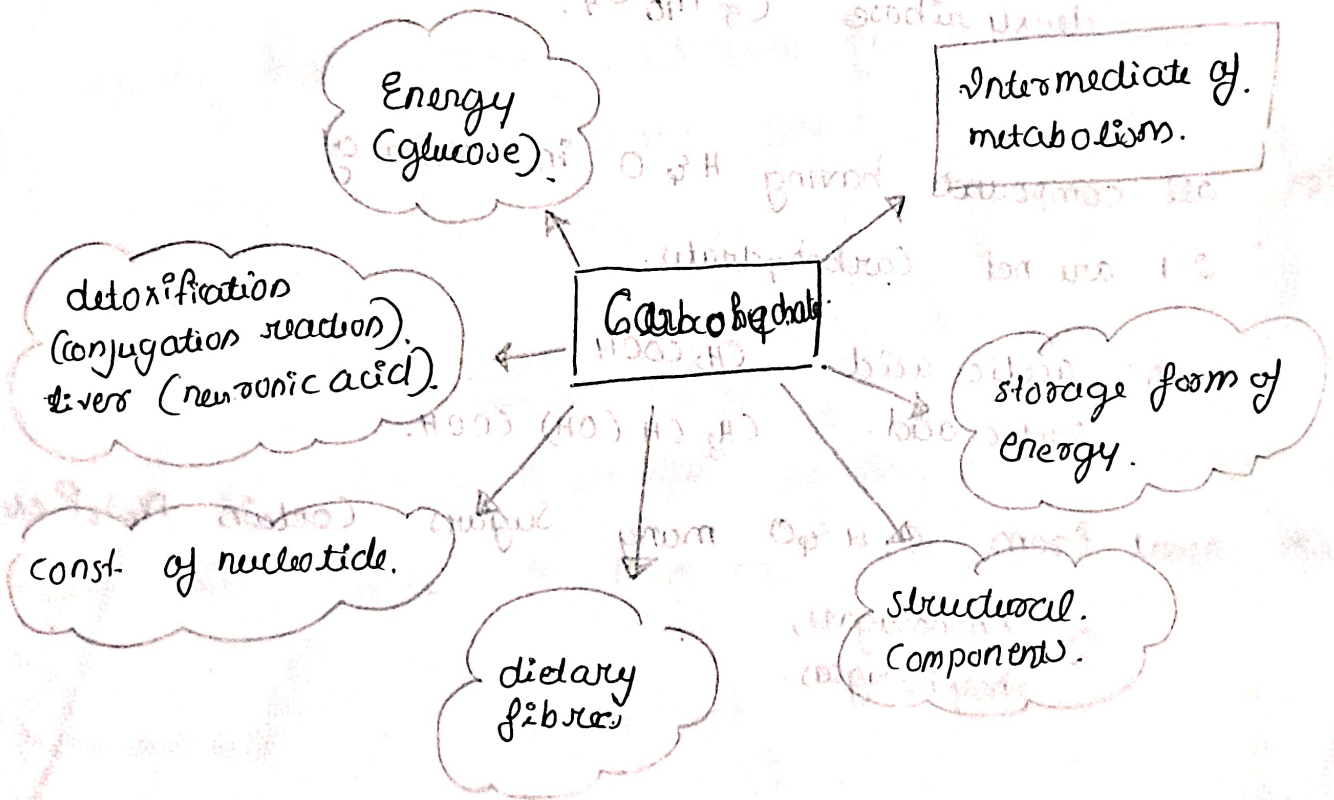 Energy
(glucose).
Intermediate of.
metabolism.
detoxification
(conjugation reaction).
liver (neuronic acid).
Carbohydrate.
storage form of
energy.
const. of nucleotide.
dietary
fibres
structural.
components.